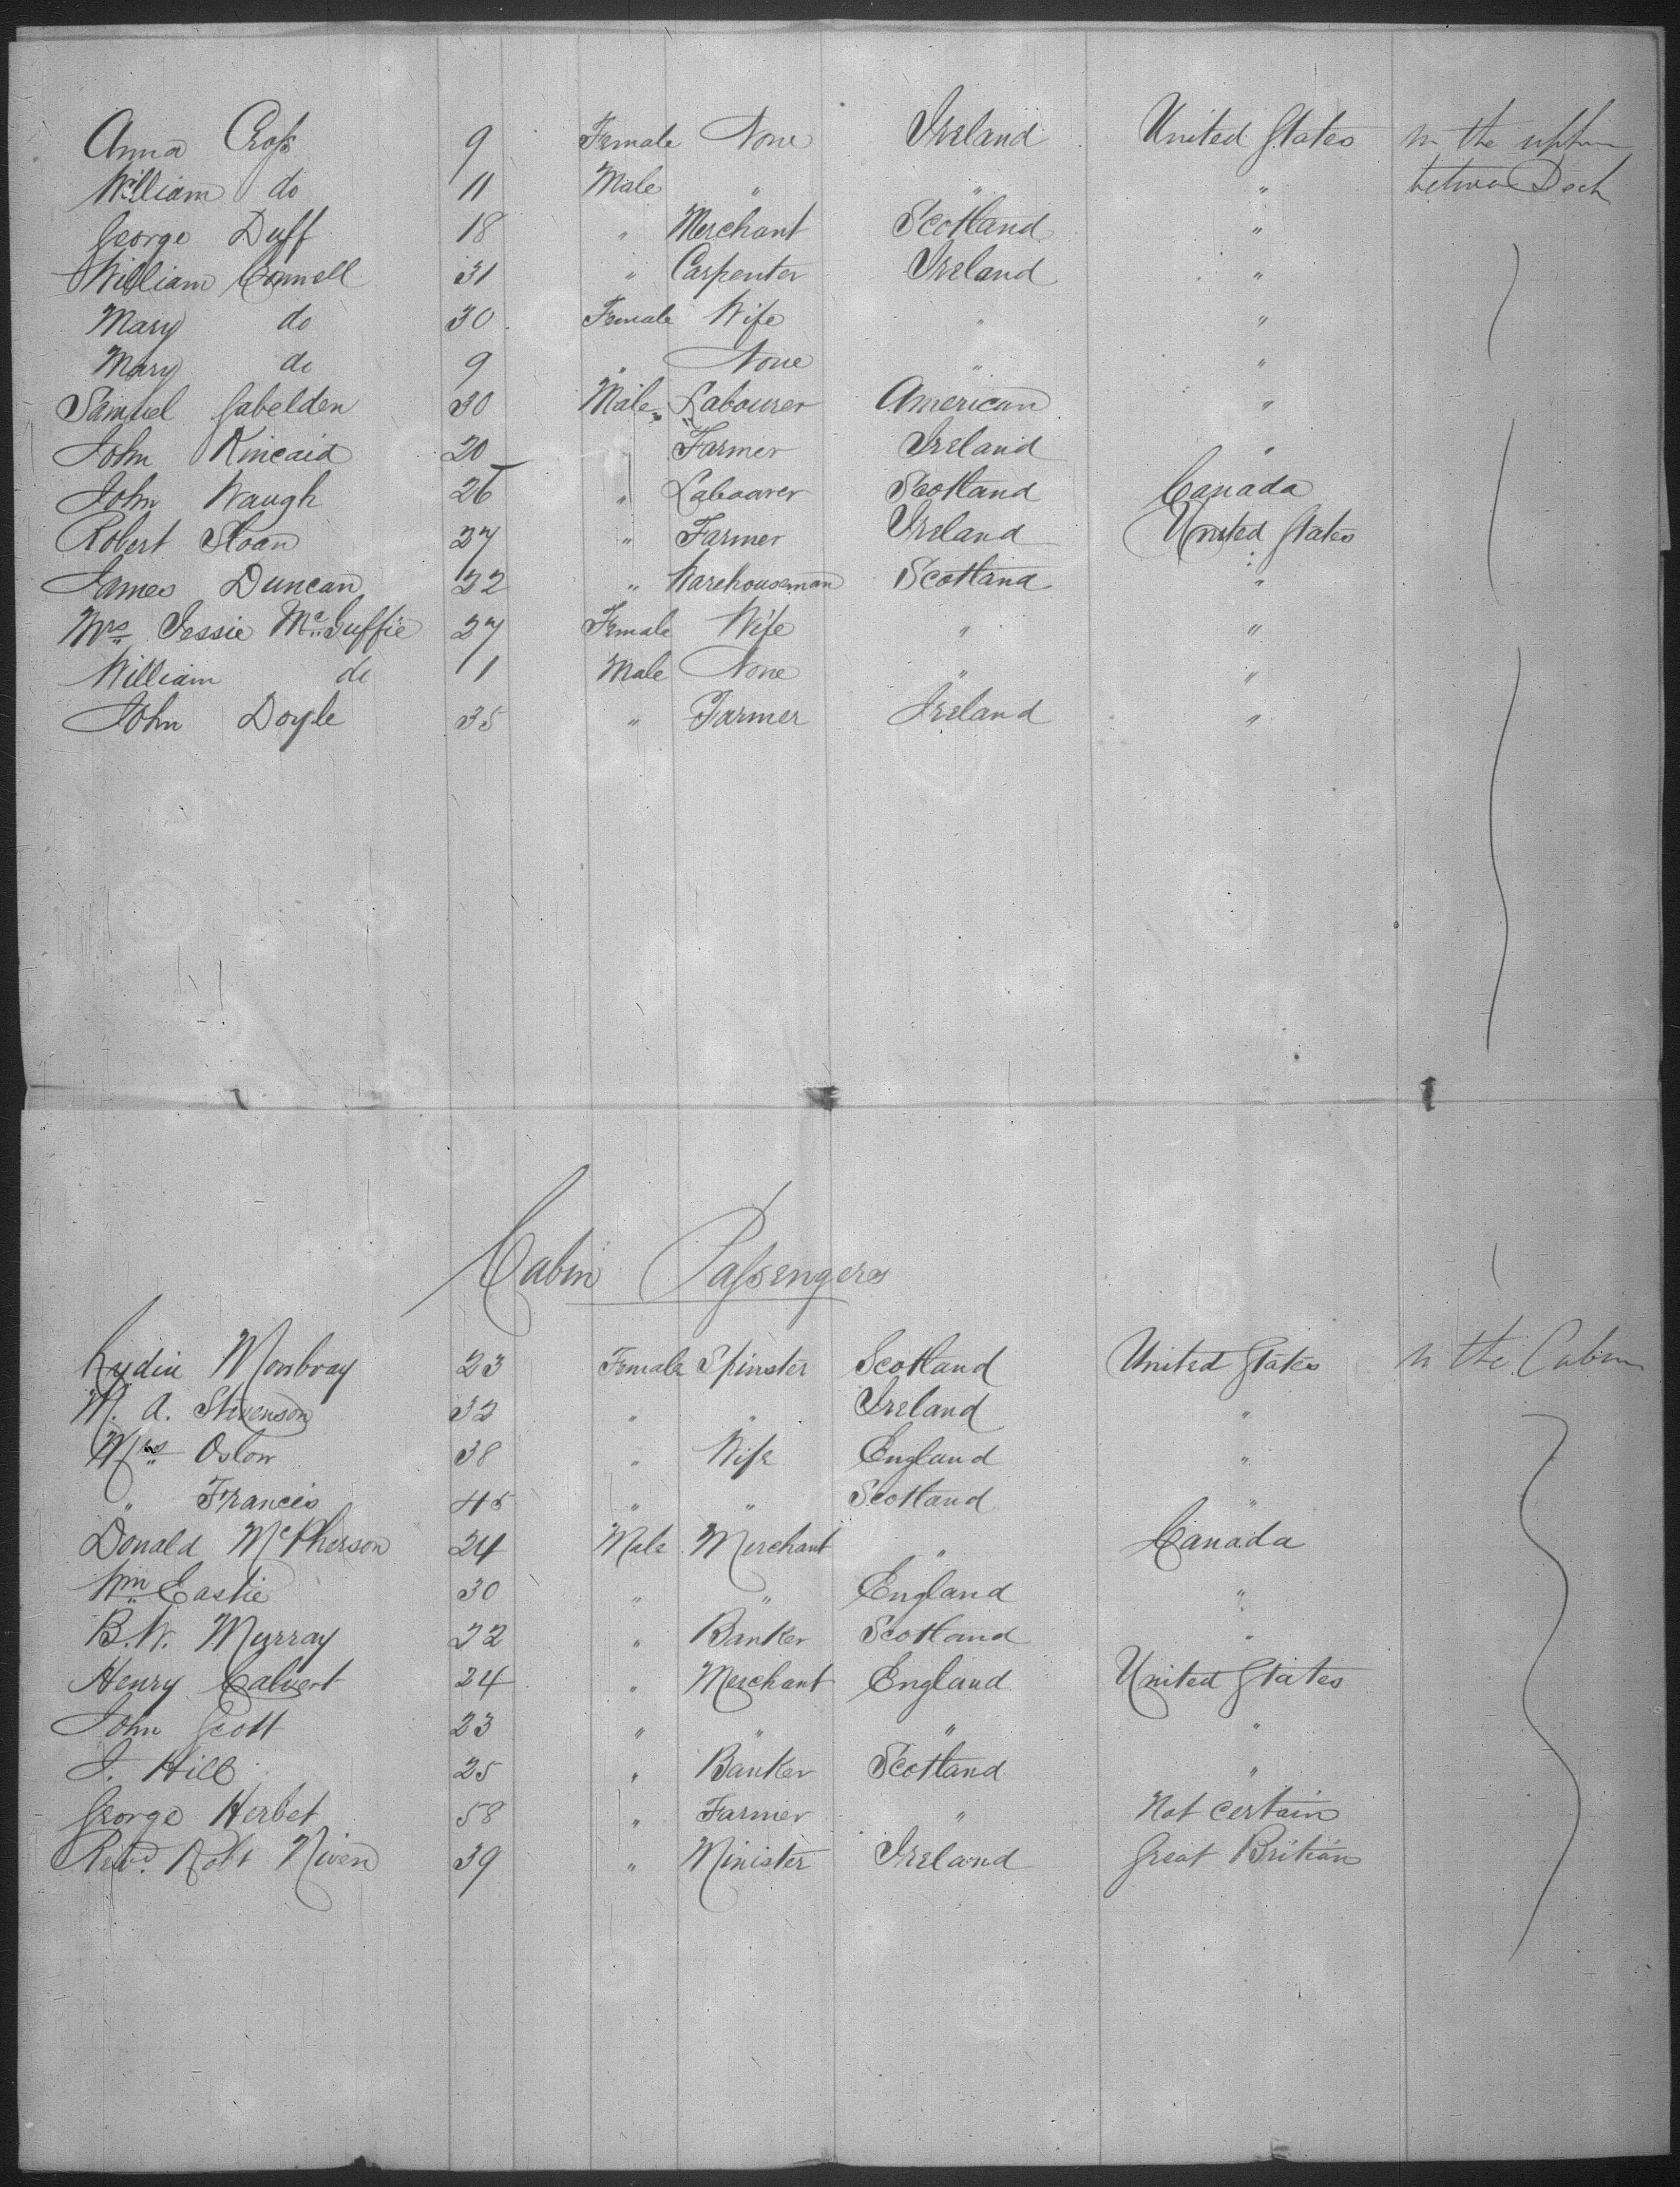 Anna Cross 9 Female None Ireland United States In the upper
William do 11 Male " " " between Deck
George Duff 18 " Merchant Scotland "
William Connell 31 " Carpenter Ireland "
Mary do 30 Female Wife " "
Mary do 9 " None " "
Samuel Gabelden 30 Male " Labourer American "
John Kincaid 20 " Farmer Ireland "
John Waugh 26 " Labourer Scotland Canada
Robert Sloan 27 " Farmer Ireland United States
James Duncan 22 " Warehouseman Scotland "
Mrs Jessie McGuffie 27 Female Wife " "
William do 11 Male None " "
John Doyle 35 " Farmer Ireland "
Cabin Passengers
Lydia Mowbray 23 Female Spinster Scotland United States In the Cabin
M. A. Stevenson 32 " " Ireland "
Mrs Oslow 38 " Wife England "
" Francis 45 " " Scotland "
Donald McPherson 24 Male Merchant " Canada
Wm Eastie 30 " " England "
B. W. Murray 22 " Banker Scotland "
Henry Calvert 24 " Merchant England United States
John Scott 23 " " " "
J. Hill 25 " Banker Scotland "
George Herbet 58 " Farmer " Not certain
Revd. Robt Niven 39 " Minister Ireland Great Britian